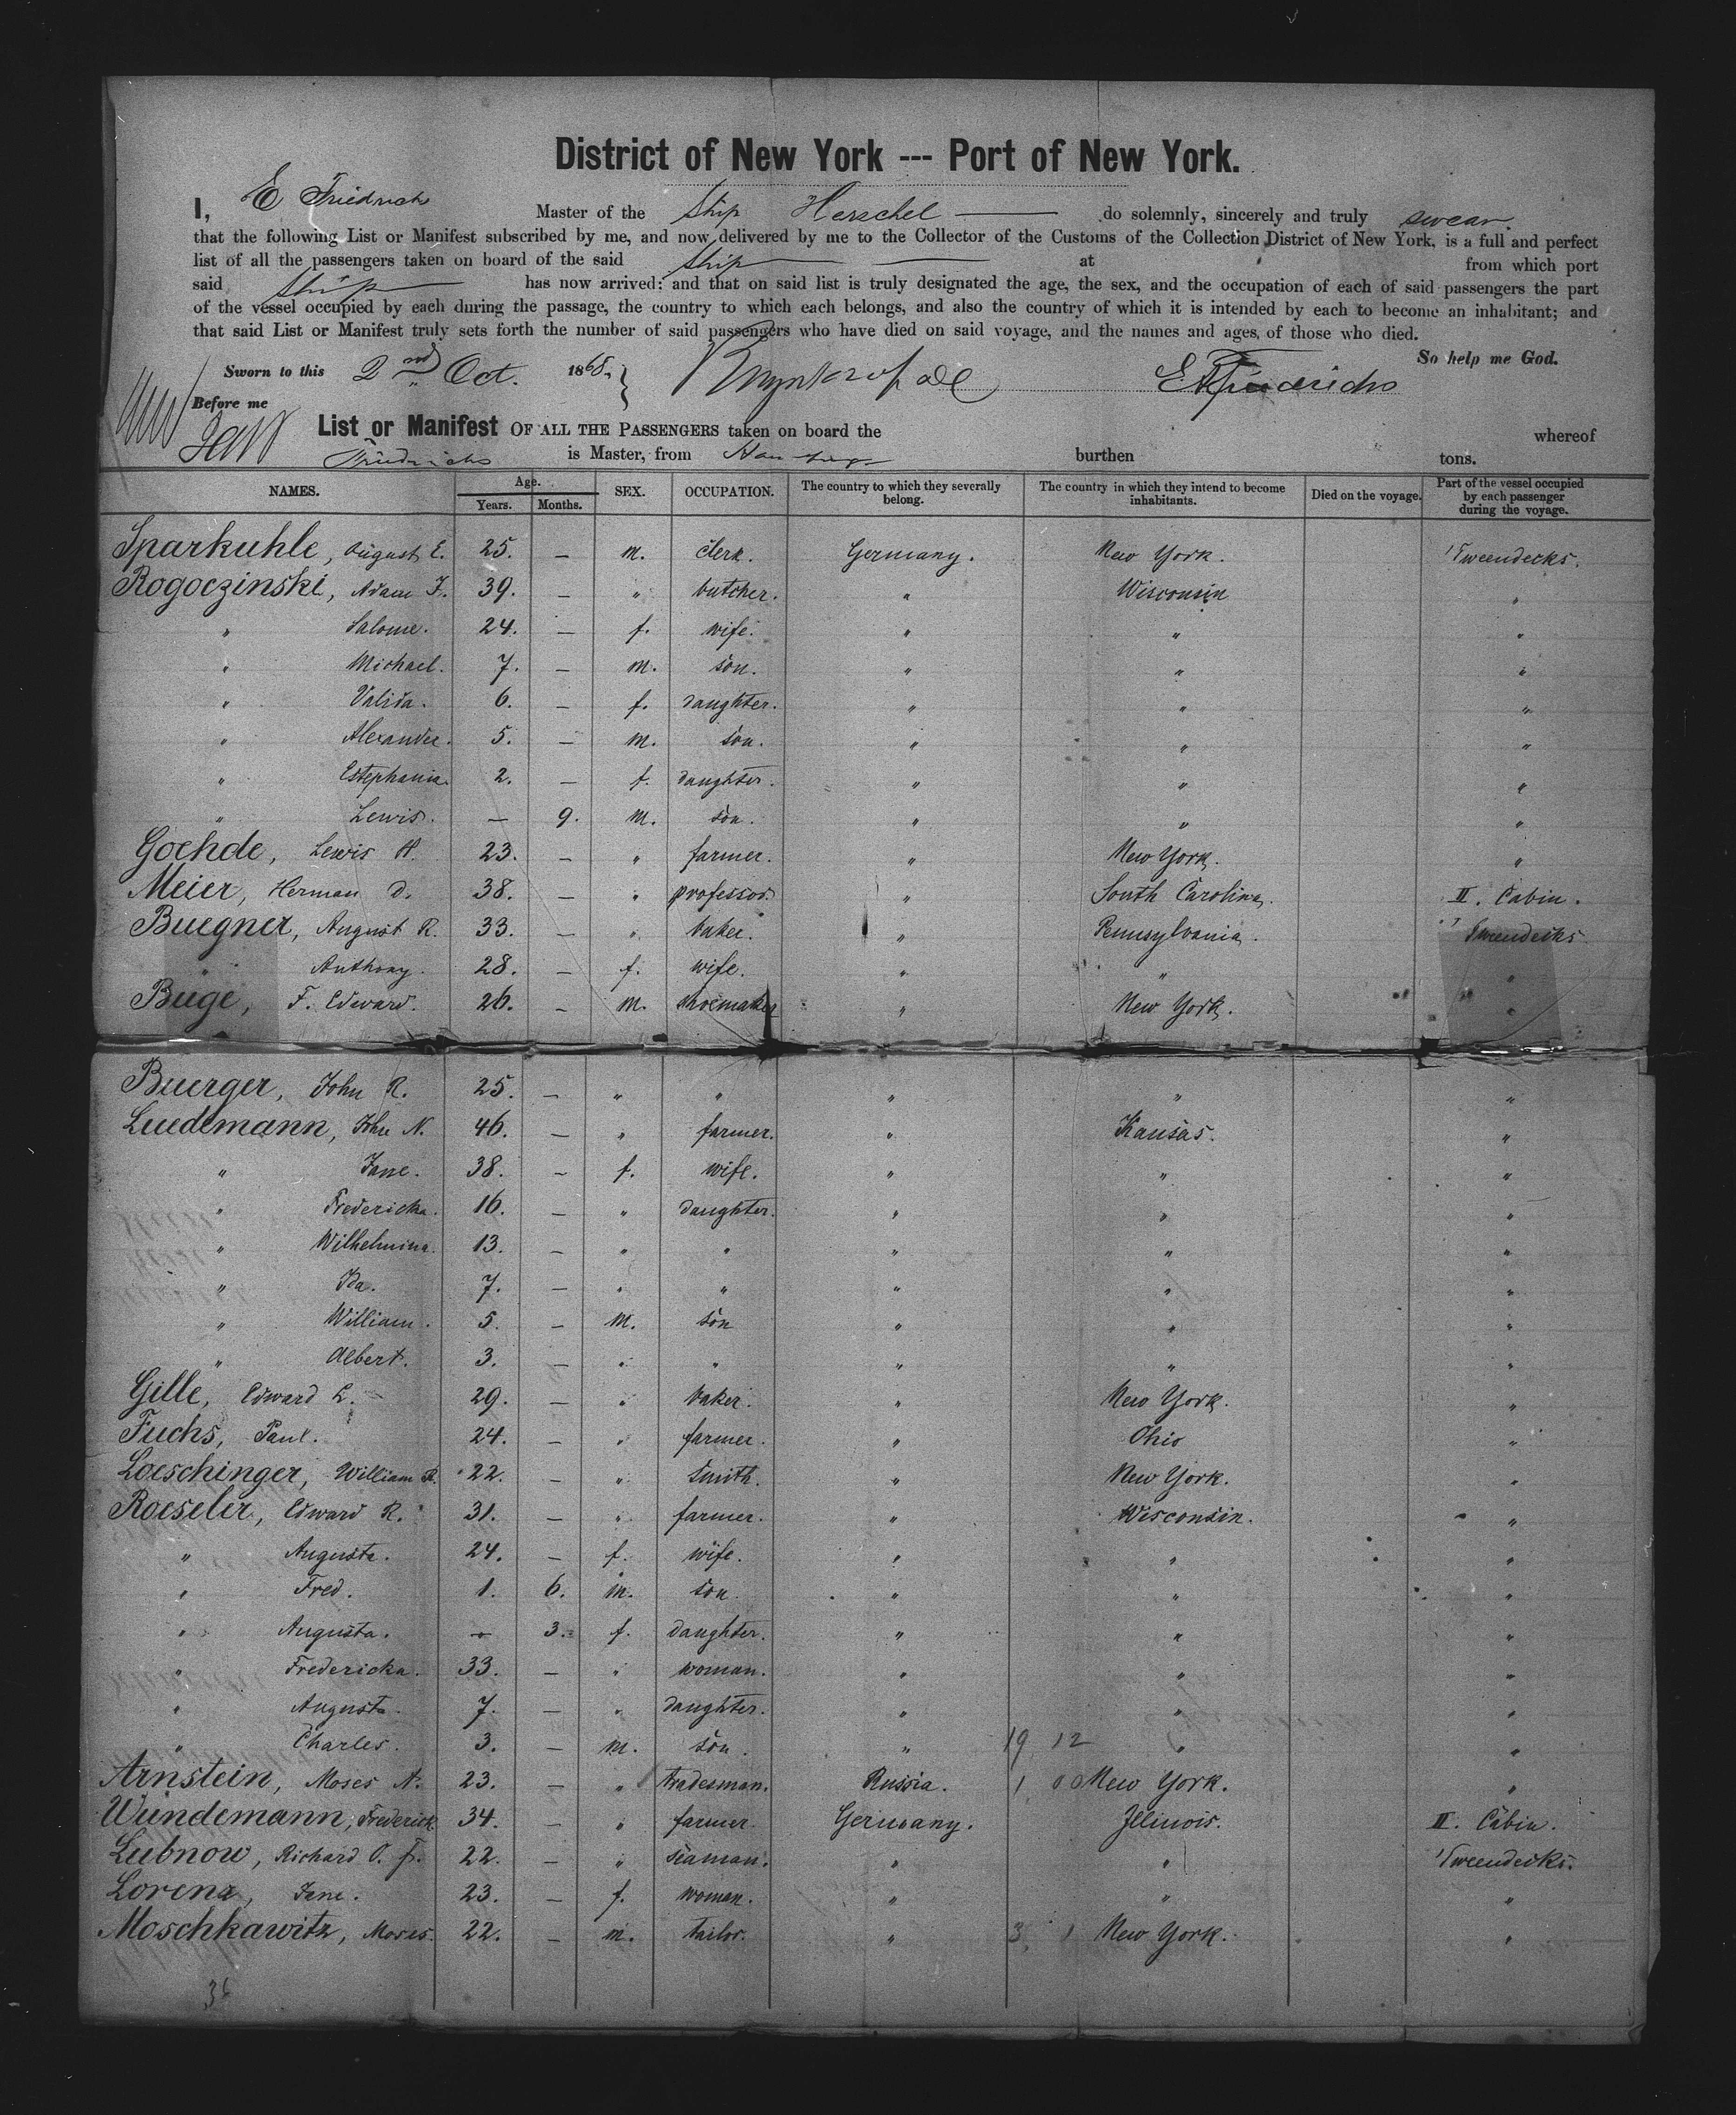 District of New York --- Port of New York.
I, E Friedrich Master of the Ship Herschel do solemnly, sincerely and truly swear
that the following List or Manifest subscribed by me, and now delivered by me to the Collector of the Customs of the Collection District of New York, is a full and perfect
list of all the passengers taken on board of the said Ship at from which port
said Ship has now arrived: and that on said list is truly designated the age, the sex, and the occupation of each of said passengers the part
of the vessel occupied by each during the passage, the country to which each belongs, and also the country of which it is intended by each to become an inhabitant; and
that said List or Manifest truly sets forth the number of said passengers who have died on said voyage, and the names and ages, of those who died.
So help me God.
Sworn to this 2nd Oct. 1868.
Before me
List or Manifest OF ALL THE PASSENGERS taken on board the whereof
Friedrichs is Master, from burthen tons.
NAMES. Age. Years. Months. SEX. OCCUPATION. The country to which they severally belong. The country in which they intend to become inhabitants. Died on the voyage. Part of the vessel occupied by each passenger during the voyage.
Sparkuhle, August E. 25. — m. clerk. Germany. New York. 'Tweendecks.
Rogoczinski, Adam F. 39. — " butcher. " Wisconsin "
" Salome. 24. — f. wife. " " "
" Michael. 7. — m. son. " " "
" Valida. 6. — f. daughter. " " "
" Alexander. 5. — m. son. " " "
" Estephania. 2. — f. daughter. " " "
" Lewis. — 9. m. son. " " "
Goehde, Lewis H. 23. — " farmer. " New York. "
Meier, Herman D. 38. — " professor. " South Carolina. II. Cabin.
Buegner, August R. 33. — " baker. " Pennsylvania. 'Tweendecks
" Anthony. 28. — f. wife. " " "
Buge, F. Edward. 26. — m. shoemaker " New York. "
Buerger, John R. 25. — " " " " "
Luedemann, John N. 46. — " farmer. " Kansas. "
" Jane. 38. — f. wife. " " "
" Fredericka. 16. — " daughter. " " "
" Wilhelmina. 13. — " " " " "
" Ida. 7. — " " " " "
" William. 5. — m. son " " "
" Albert. 3. — " " " " "
Gille, Edward L. 29. — " baker. " New York. "
Fuchs, Paul. 24. — " farmer. " Ohio "
Loeschinger, William R. 22. — " smith. " New York. "
Roeseler, Edward R. 31. — " farmer. " Wisconsin. "
" Augusta. 24. — f. wife. " " "
" Fred. 1. 6. m. son. " " "
" Augusta. — 3. f. daughter. " " "
" Fredericka. 33. — " woman. " " "
" Augusta. 7. — " daughter. " " "
" Charles. 3. — m. son. " 19 12 " "
Arnstein, Moses N. 23. — " tradesman. Russia. 1 00 New York. "
Wundemann, Frederick 34. — " farmer. Germany. Illinois. II. Cabin.
Lubnow, Richard O. F. 22. — " seaman. " " 'Tweendecks.
Lorenz, Jane. 23. — f. woman. " " "
Moschkawitz, Moses. 22. — m. tailor. " 3 1 New York. "
36